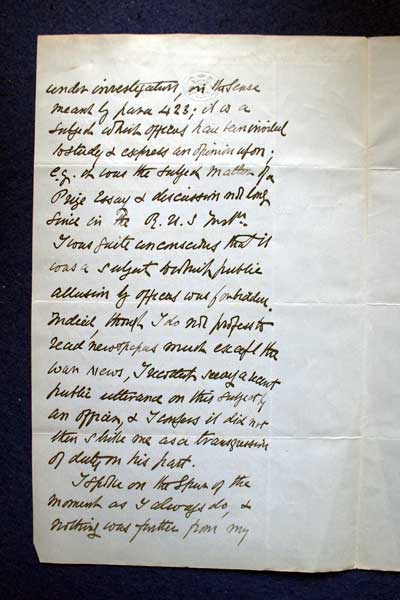 under investigation, in the sense
meant by para 423; it is a
subject which officers have been invited
to study & express an opinion upon;
e.g. it was the subject matter of a
Prize Essay & discussion not long
since in the R. U. S Instn.
I was quite unconscious that it
was a subject to which public
allusion by officers was forbidden.
Indeed, though I do not profess to
read newspapers much except the
war news, I recollect seeing a recent
public utterance on this subject by
an officer, & I confess it did not
then strike me as a transgression
of duty on his part.
I spoke on the spur of the
moment as I always do, &
nothing was further from my